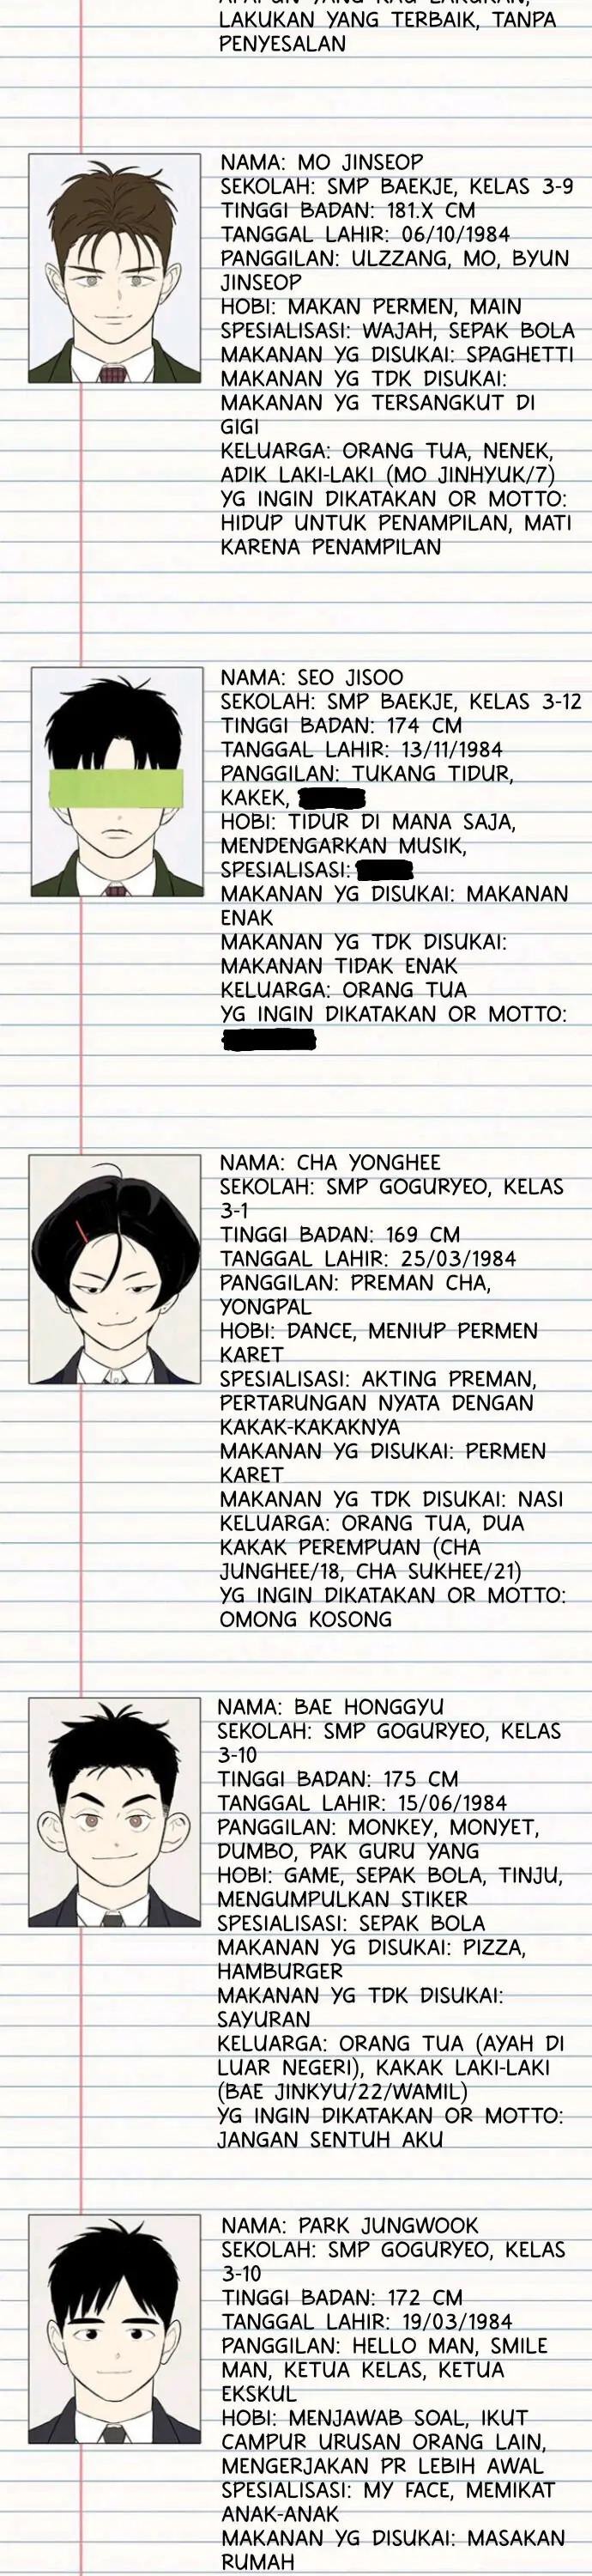 LAKUKAN YANG TERBAIK, TANPA
PENYESALAN
NAMA: MO JINSEOP
SEKOLAH: SMP BAEKJE, KELAS 3-9
TINGGI BADAN: 181.X CM
TANGGAL LAHIR: 06/10/1984
PANGGILAN: ULZZANG, MO, BYUN
JINSEOP
HOBI: MAKAN PERMEN, MAIN
SPESIALISASI: WAJAH, SEPAK BOLA
MAKANAN YG DISUKAI: SPAGHETTI
MAKANAN YG TDK DISUKAI:
MAKANAN YG TERSANGKUT DI
GIGI
KELUARGA: ORANG TUA, NENEK,
ADIK LAKI-LAKI (MO JINHYUK/7)
YG INGIN DIKATAKAN OR MOTTO:
HIDUP UNTUK PENAMPILAN, MATI
KARENA PENAMPILAN
NAMA: SEO JISOO
SEKOLAH: SMP BAEKJE, KELAS 3-12
TINGGI BADAN: 174 CM
TANGGAL LAHIR: 13/11/1984
PANGGILAN: TUKANG TIDUR,
KAKEK,
HOBI: TIDUR DI MANA SAJA,
MENDENGARKAN MUSIK,
SPESIALISASI:
MAKANAN YG DISUKAI: MAKANAN
ENAK
MAKANAN YG TDK DISUKAI:
MAKANAN TIDAK ENAK
KELUARGA: ORANG TUA
YG INGIN DIKATAKAN OR MOTTO:
NAMA: CHA YONGHEE
SEKOLAH: SMP GOGURYEO, KELAS
3-1
TINGGI BADAN: 169 CM
TANGGAL LAHIR: 25/03/1984
PANGGILAN: PREMAN CHA,
YONGPAL
HOBI: DANCE, MENIUP PERMEN
KARET
SPESIALISASI: AKTING PREMAN,
PERTARUNGAN NYATA DENGAN
KAKAK-KAKAKNYA
MAKANAN YG DISUKAI: PERMEN
KARET
MAKANAN YG TDK DISUKAI: NASI
KELUARGA: ORANG TUA, DUA
KAKAK PEREMPUAN (CHA
JUNGHEE/18, CHA SUKHEE/21)
YG INGIN DIKATAKAN OR MOTTO:
OMONG KOSONG
NAMA: BAE HONGGYU
SEKOLAH: SMP GOGURYEO, KELAS
3-10
TINGGI BADAN: 175 CM
TANGGAL LAHIR: 15/06/1984
PANGGILAN: MONKEY, MONYET,
DUMBO, PAK GURU YANG
HOBI: GAME, SEPAK BOLA, TINJU,
MENGUMPULKAN STIKER
SPESIALISASI: SEPAK BOLA
MAKANAN YG DISUKAI: PIZZA,
HAMBURGER
MAKANAN YG TDK DISUKAI:
SAYURAN
KELUARGA: ORANG TUA (AYAH DI
LUAR NEGERI), KAKAK LAKI-LAKI
(BAE JINKYU/22/WAMIL)
YG INGIN DIKATAKAN OR MOTTO:
JANGAN SENTUH AKU
NAMA: PARK JUNGWOOK
SEKOLAH: SMP GOGURYEO, KELAS
3-10
TINGGI BADAN: 172 CM
TANGGAL LAHIR: 19/03/1984
PANGGILAN: HELLO MAN, SMILE
MAN, KETUA KELAS, KETUA
EKSKUL
HOBI: MENJAWAB SOAL, IKUT
CAMPUR URUSAN ORANG LAIN,
MENGERJAKAN PR LEBIH AWAL
SPESIALISASI: MY FACE, MEMIKAT
ANAK-ANAK
MAKANAN YG DISUKAI: MASAKAN
RUMAH